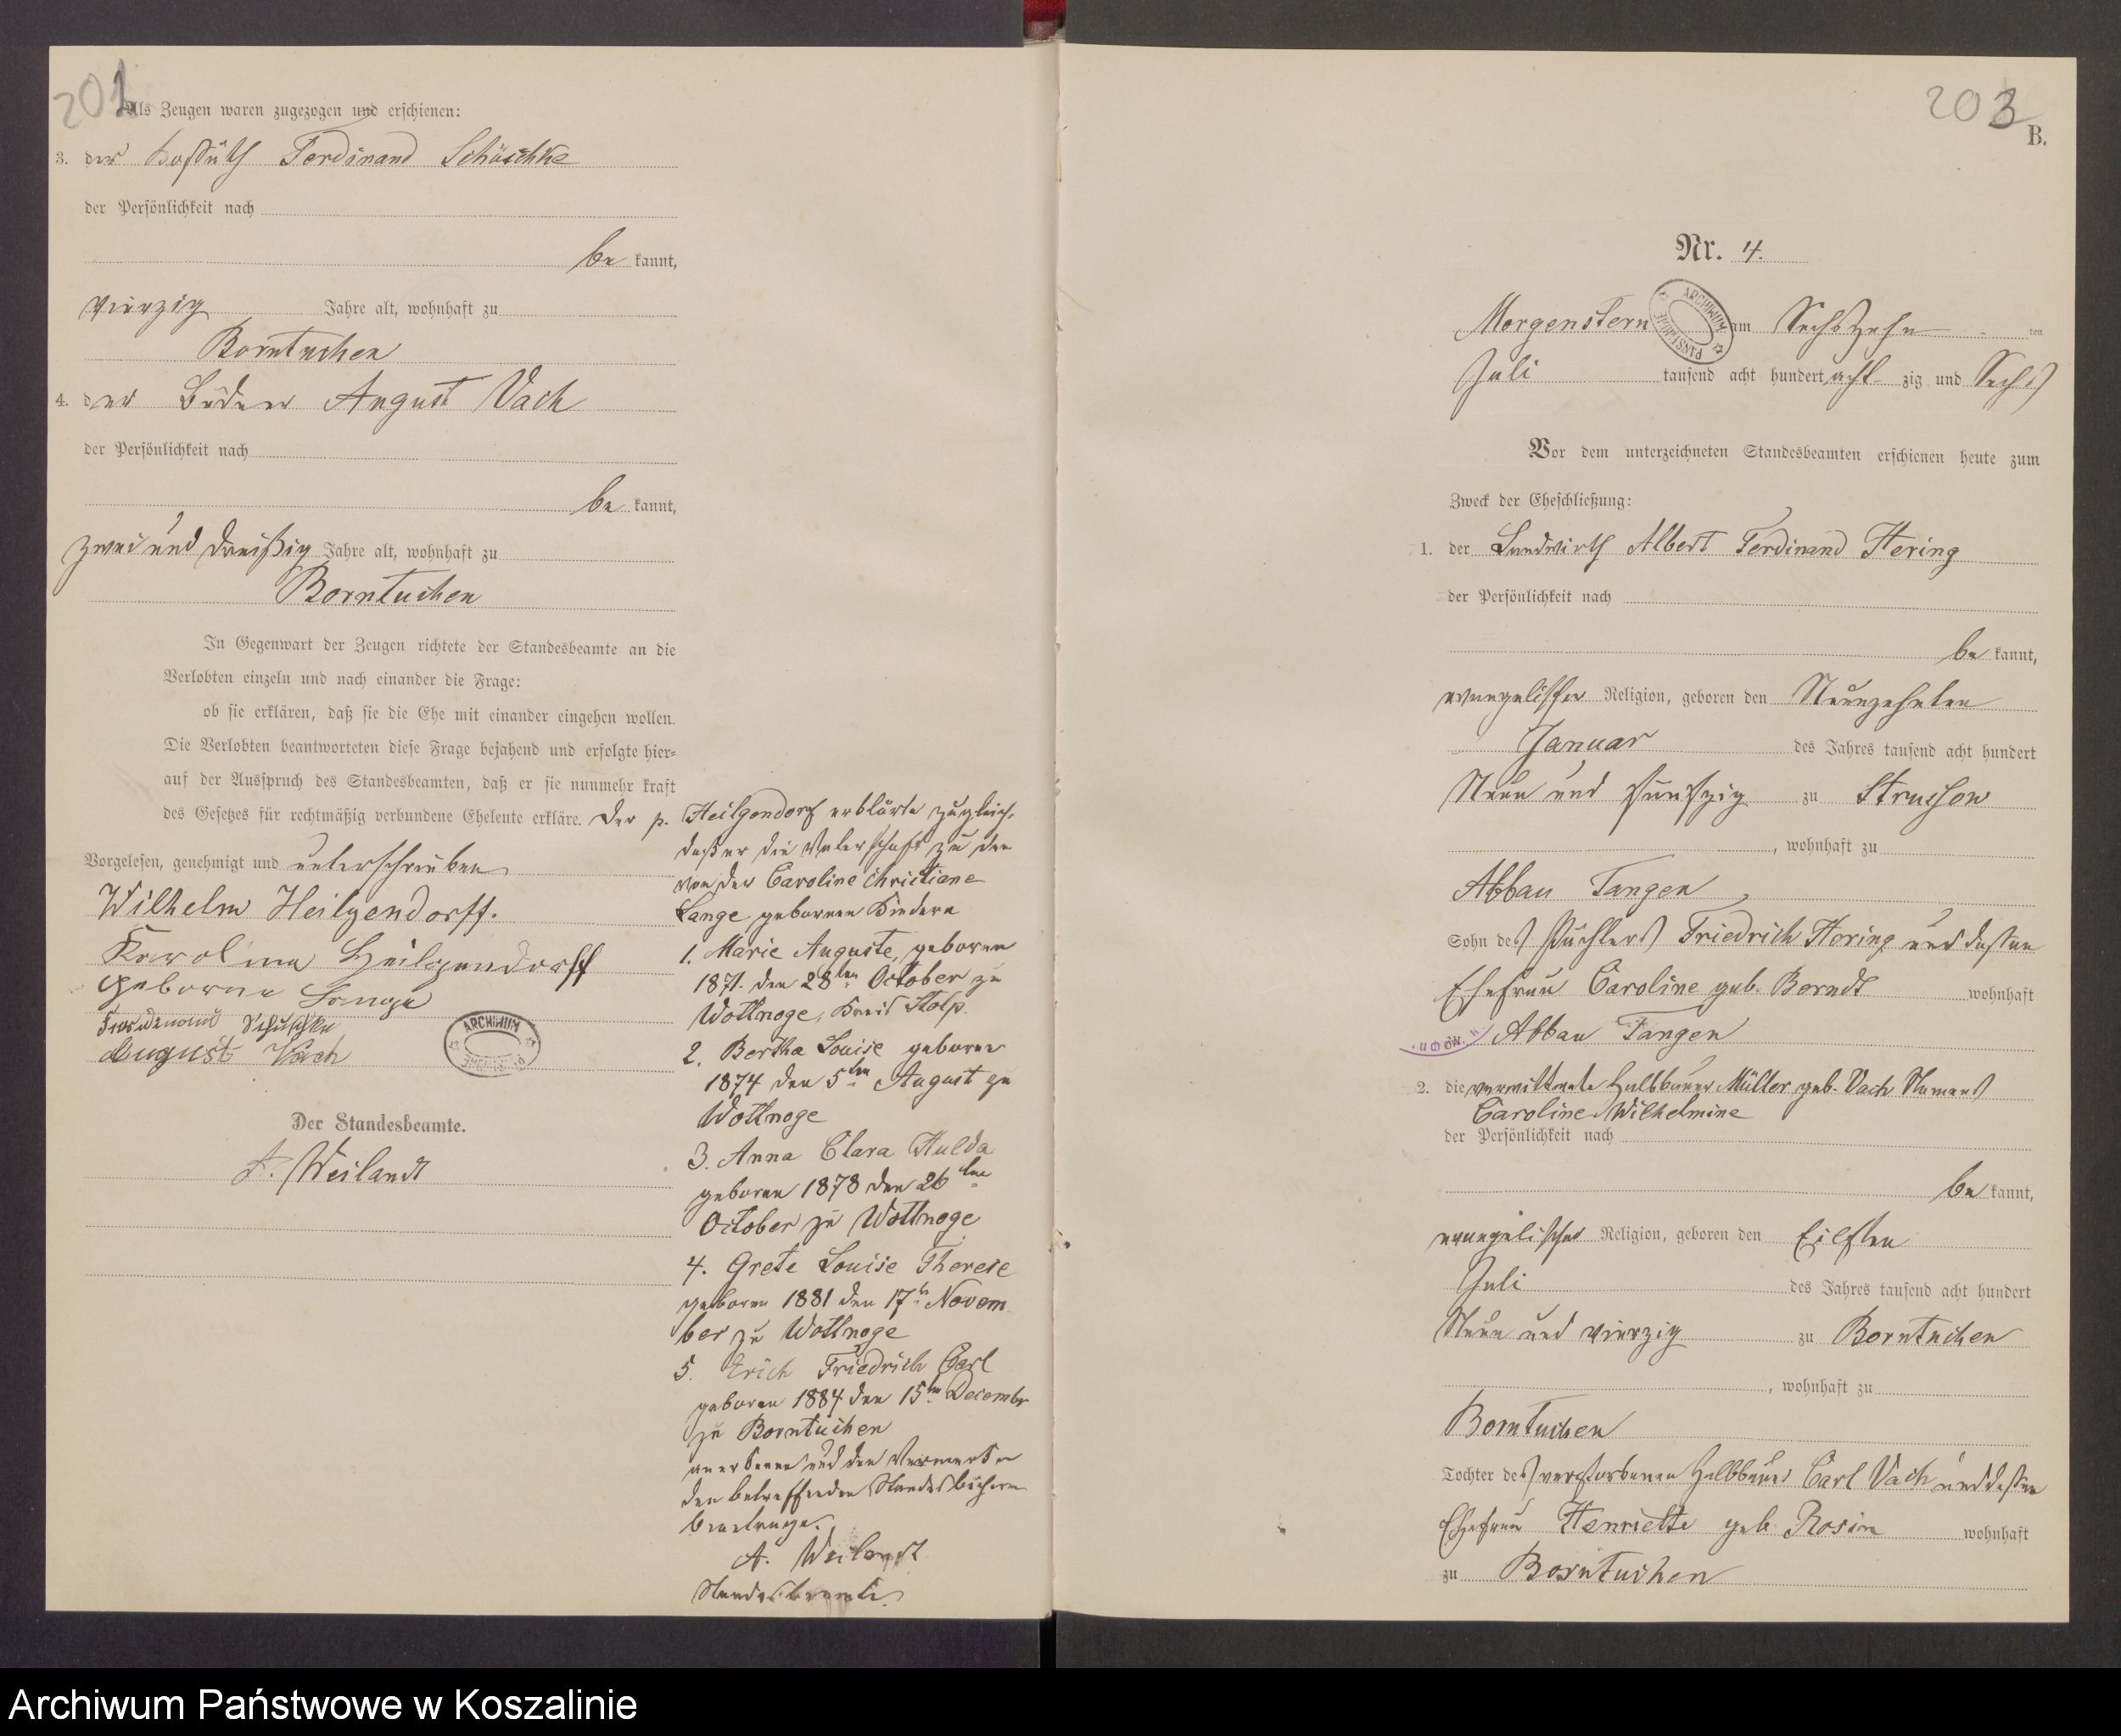 201
Als Zeugen waren zugezogen und erschienen:
3. der Ferdinand Schüschke
der Persönlichkeit nach
be kannt,
vierzig Jahre alt, wohnhaft zu
Borntuchen
4. der August Vach
der Persönlichkeit nach
be kannt,
zwei und dreißig Jahre alt, wohnhaft zu
Borntuchen
In Gegenwart der Zeugen richtete der Standesbeamte an die
Verlobten einzeln und nach einander die Frage:
ob sie erklären, daß sie die Ehe mit einander eingehen wollen.
Die Verlobten beantworteten diese Frage bejahend und erfolgte hier-
auf der Ausspruch des Standesbeamten, daß er sie nunmehr kraft
des Gesetzes für rechtmäßig verbundene Eheleute erkläre. Der p. Heilgendorf erklärte zugleich,
daß er die Vaterschaft zu den
von der Caroline Christiane
Lange geborenen Kindern
1. Marie Auguste, geboren
1871. den 28ten October zu
Wottnoge, Kreis Stolp.
2. Bertha Louise geboren
1874 den 5ten August zu
Wottnoge
3. Anna Clara Hulda
geboren 1878 den 26ten
October zu Wottnoge
4. Grete Louise Therese
geboren 1881 den 17tn Novem
ber zu Wottnoge
5. Erich Friedrich Carl
geboren 1884 den 15ten Decembr
zu Borntuchen
anerkenne und den Vermerk in
den betreffenden Standesbüchern
beantrage.
A. Weilandt
Standesbeamte.
Vorgelesen, genehmigt und unterschrieben
Wilhelm Heilgendorff.
Karolina Heilgendorff
geborne Lange
Ferdinand Schüschke
August Vach
ARCHIWUM PAŃSTWOWE
Der Standesbeamte.
A. Weilandt
203
B.
Nr. 4.
Morgenstern am Sechszehn ten
ARCHIWUM PAŃSTWOWE
Juli tausend acht hundert acht zig und Sechs
Vor dem unterzeichneten Standesbeamten erschienen heute zum
Zweck der Eheschließung:
1. der Landwirth Albert Ferdinand Hering
der Persönlichkeit nach
be kannt,
evangelischer Religion, geboren den Neunzehnten
Januar des Jahres tausend acht hundert
Neun und fünfzig zu Strussow
, wohnhaft zu
Abbau Tangen
Sohn des Pächters Friedrich Hering und dessen
Ehefrau Caroline geb. Berndt wohnhaft
zu Abbau Tangen
2. die verwittwete Halbbauer Müller geb. Vach Namens
Caroline Wilhelmine
der Persönlichkeit nach
be kannt,
evangelischer Religion, geboren den Eilften
Juli des Jahres tausend acht hundert
Neun und vierzig zu Borntuchen
, wohnhaft zu
Borntuchen
Tochter des verstorbenen Halbbauer Carl Vach und dessen
Ehefrau Henriette geb. Rosin wohnhaft
zu Borntuchen
Archiwum Państwowe w Koszalinie